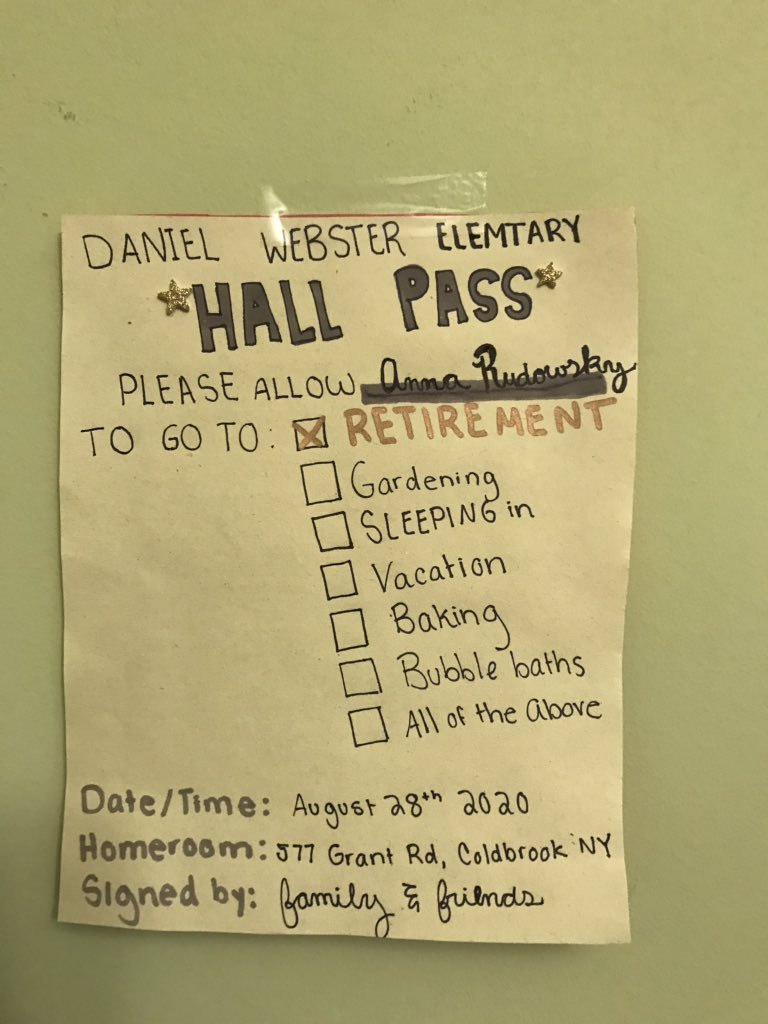 DANIEL WEBSTER ELEMTARY
HALL PASS
PLEASE ALLOW Anna Rudowsky
TO GO TO: RETIREMENT
Gardening
SLEEPING in
Vacation
Baking
Bubble baths
All of the above
Date/Time: August 28th 2020
Homeroom: 577 Grant Rd, Coldbrook NY
Signed by: family & friends